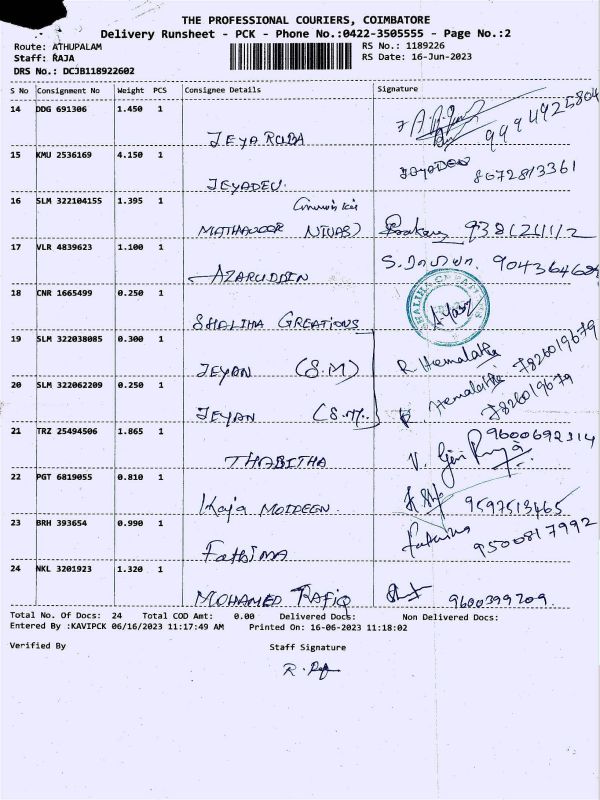 THE PROFESSIONAL COURIERS, COIMBATORE
Delivery Runsheet - PCK - Phone No.:0422-3505555 - Page No.:2
Route: ATHUPALAM RS No.: 1189226
Staff: RAJA RS Date: 16-Jun-2023
DRS No.: DCJB118922602
S No Consignment No Weight PCS Consignee Details Signature
14 DDG 691306 1.450 1
JEYA RUBA 9994925804
15 KMU 2536169 4.150 1
JEYADEV. JEYADEV 8072813361
16 SLM 322104155 1.395 1
MATHAVOOR NIVAS)
17 VLR 4839623 1.100 1
AZARUDDIN S. 
18 CNR 1665499 0.250 1
SHALIHA CREATIONS
19 SLM 322038085 0.300 1
JEYAN (S.M) R Hemalatha 7826019679
20 SLM 322062209 0.250 1
JEYAN (S.M. R. Hemalatha 7826019679
21 TRZ 25494506 1.865 1 9600692314
THABITHA V.
22 PGT 6819055 0.810 1
Kaja MOIDEEN. 9597513465
23 BRH 393654 0.990 1
FathiMA Fathima 9500817992
24 NKL 3201923 1.320 1
MOHAMED RAFIQ 9600399709.
Total No. Of Docs: 24 Total COD Amt: 0.00 Delivered Docs: Non Delivered Docs:
Entered By :KAVIPCK 06/16/2023 11:17:49 AM Printed On: 16-06-2023 11:18:02
Verified By Staff Signature